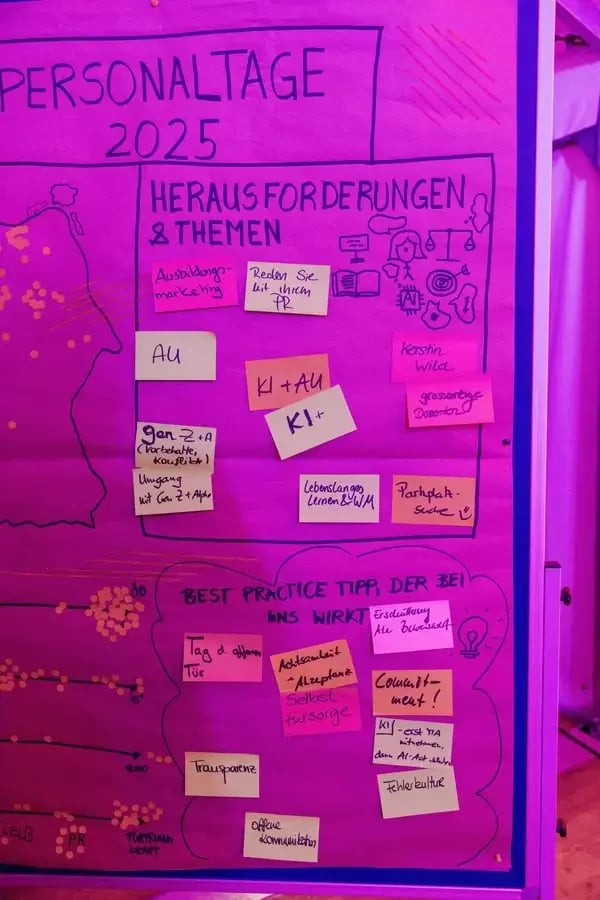 PERSONALTAGE
2025
HERAUSFORDERUNGEN
& THEMEN
AI
Ausbildungs-
marketing
Reden Sie
mit ihrem
PR
AU
KI + AU
KI+
Kerstin
Wild
grossartige
Dozenten
gen Z + A
(Vorbehalte,
Konflikte)
Umgang
mit Gen Z + Alpha
Lebenslanges
Lernen & WM
Parkplatz-
suche
BEST PRACTICE TIPP, DER BEI
UNS WIRKT
Tag d. offenen
Tür
Achtsamkeit
+ Akzeptanz
Selbst-
fürsorge
Commit-
ment!
KI - erst MA
mitnehmen,
dann AI-Act
Transparenz
Fehlerkultur
offene
Kommunikation
PR
KRAFT